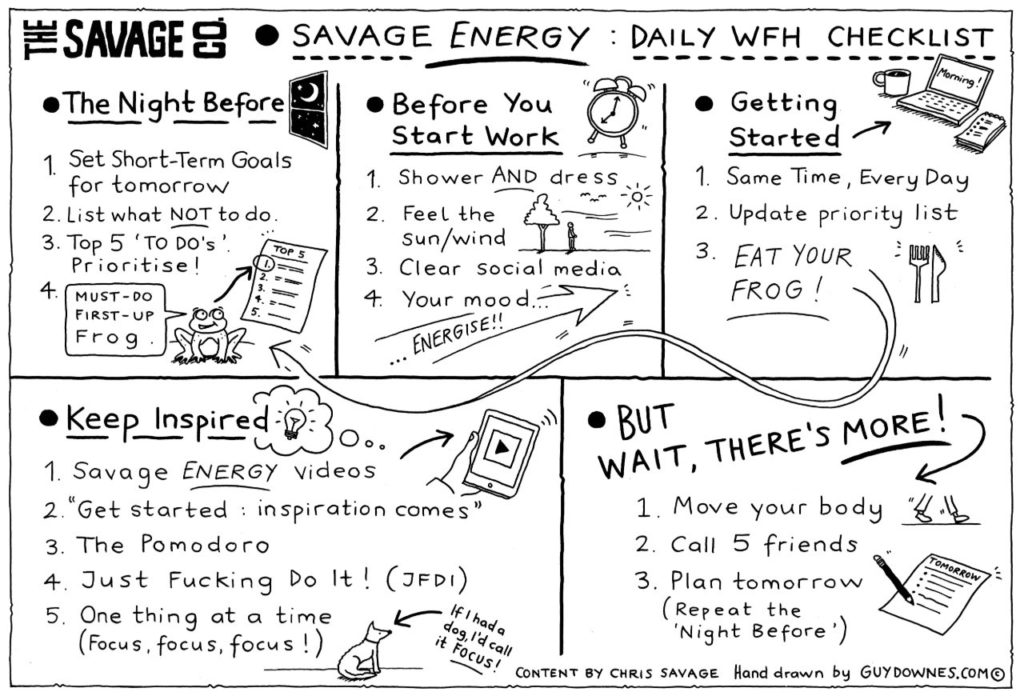 THE SAVAGE CO.
SAVAGE ENERGY : DAILY WFH CHECKLIST
The Night Before
1. Set Short-Term Goals
for tomorrow
2. List what NOT to do.
3. Top 5 'TO DO's'.
Prioritise!
4. MUST-DO
FIRST-UP
Frog.
TOP 5
1.
2.
3.
4.
5.
Before You
Start Work
1. Shower AND dress
2. Feel the
sun/wind
3. Clear social media
4. Your mood...
... ENERGISE!!
Getting
Started
Morning!
1. Same Time, Every Day
2. Update priority list
3. EAT YOUR
FROG!
Keep Inspired
1. Savage ENERGY videos
2. "Get started : inspiration comes"
3. The Pomodoro
4. Just Fucking Do It! (JFDI)
5. One thing at a time
(Focus, focus, focus!)
If I had a
dog, I'd call
it FOCUS!
BUT
WAIT, THERE'S MORE!
1. Move your body
2. Call 5 friends
3. Plan tomorrow
(Repeat the
'Night Before')
TOMORROW
CONTENT BY CHRIS SAVAGE Hand drawn by GUYDOWNES.COM©